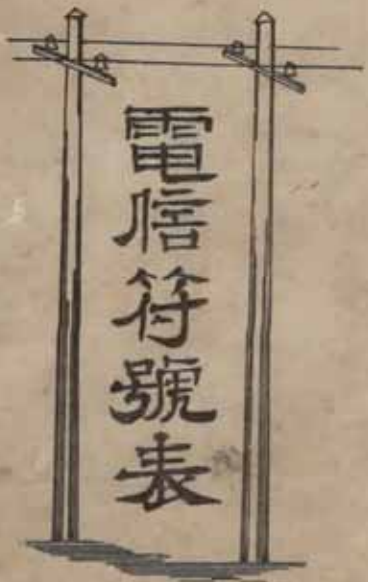 電信符號表